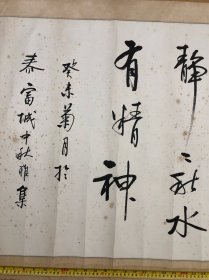 静〻秋水
有精神
癸未菊月於
泰富城中秋雅集